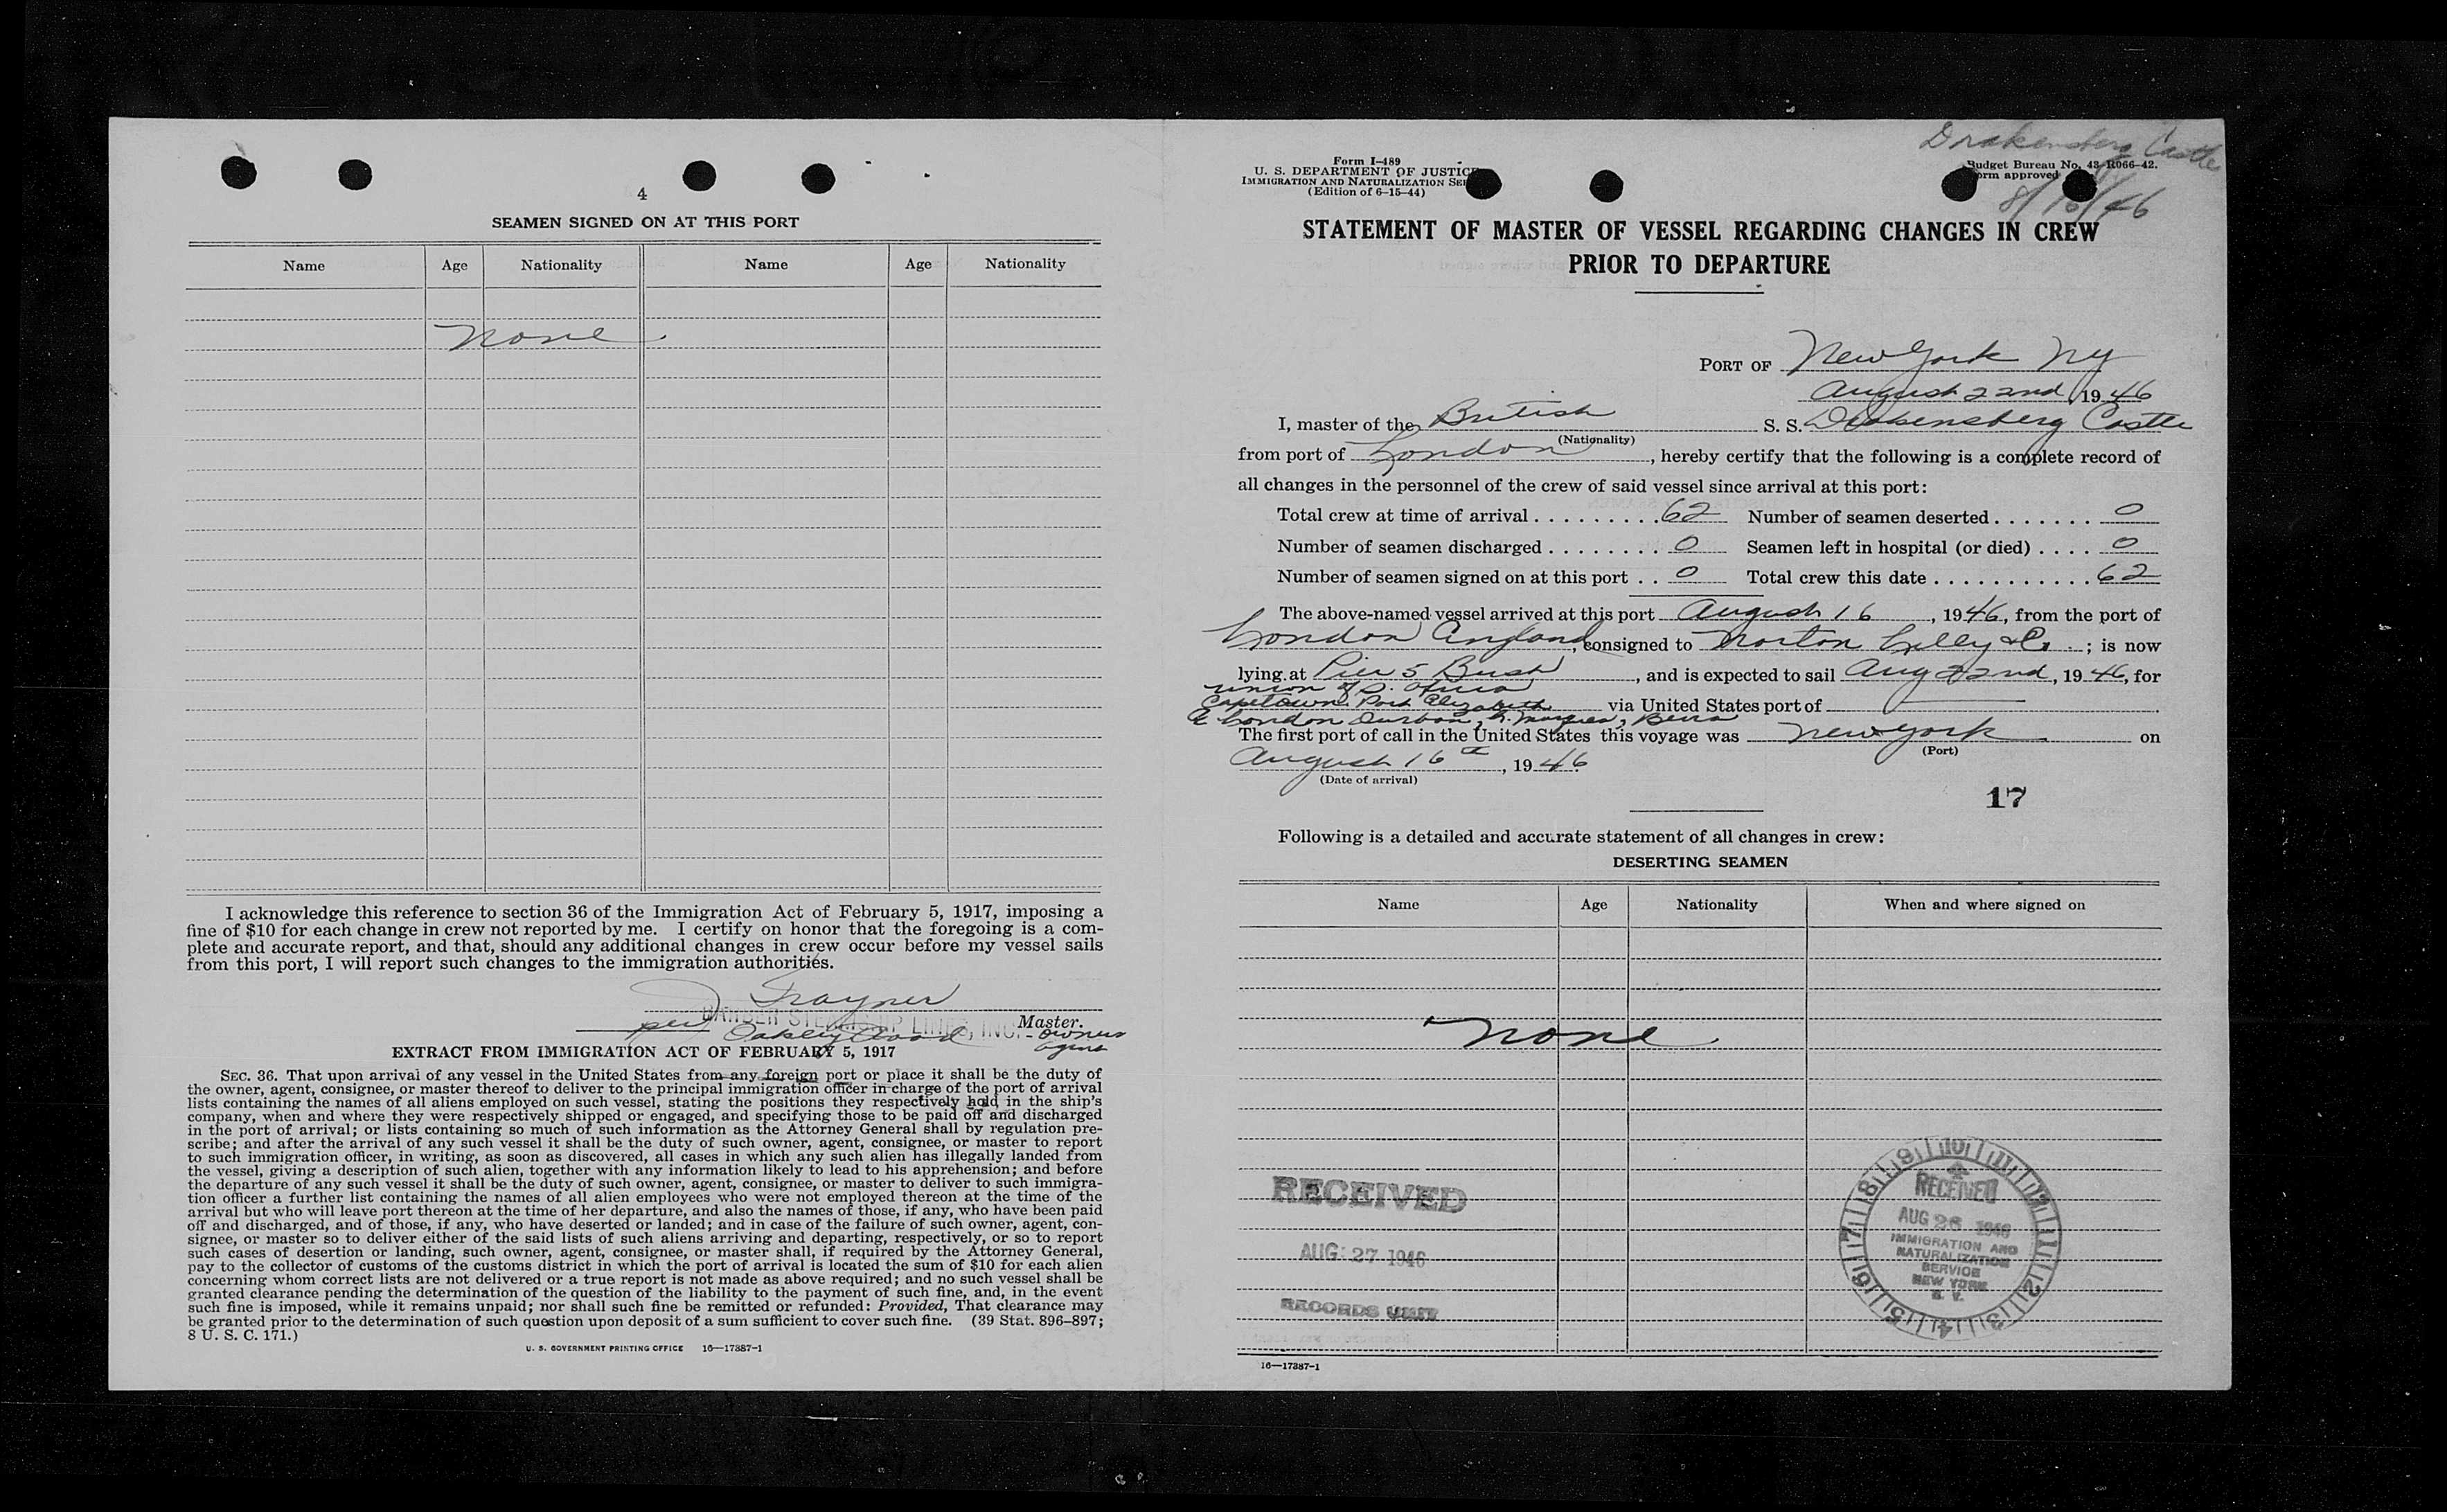 4
SEAMEN SIGNED ON AT THIS PORT
Name Age Nationality Name Age Nationality
None
I acknowledge this reference to section 36 of the Immigration Act of February 5, 1917, imposing a
fine of $10 for each change in crew not reported by me. I certify on honor that the foregoing is a com-
plete and accurate report, and that, should any additional changes in crew occur before my vessel sails
from this port, I will report such changes to the immigration authorities.
Trayner
BARBER STEAMSHIP LINES, INC. Master.
per Oakley Wood - owners
agents
EXTRACT FROM IMMIGRATION ACT OF FEBRUARY 5, 1917
SEC. 36. That upon arrival of any vessel in the United States from any foreign port or place it shall be the duty of
the owner, agent, consignee, or master thereof to deliver to the principal immigration officer in charge of the port of arrival
lists containing the names of all aliens employed on such vessel, stating the positions they respectively hold in the ship's
company, when and where they were respectively shipped or engaged, and specifying those to be paid off and discharged
in the port of arrival; or lists containing so much of such information as the Attorney General shall by regulation pre-
scribe; and after the arrival of any such vessel it shall be the duty of such owner, agent, consignee, or master to report
to such immigration officer, in writing, as soon as discovered, all cases in which any such alien has illegally landed from
the vessel, giving a description of such alien, together with any information likely to lead to his apprehension; and before
the departure of any such vessel it shall be the duty of such owner, agent, consignee, or master to deliver to such immigra-
tion officer a further list containing the names of all alien employees who were not employed thereon at the time of the
arrival but who will leave port thereon at the time of her departure, and also the names of those, if any, who have been paid
off and discharged, and of those, if any, who have deserted or landed; and in case of the failure of such owner, agent, con-
signee, or master so to deliver either of the said lists of such aliens arriving and departing, respectively, or so to report
such cases of desertion or landing, such owner, agent, consignee, or master shall, if required by the Attorney General,
pay to the collector of customs of the customs district in which the port of arrival is located the sum of $10 for each alien
concerning whom correct lists are not delivered or a true report is not made as above required; and no such vessel shall be
granted clearance pending the determination of the question of the liability to the payment of such fine, and, in the event
such fine is imposed, while it remains unpaid; nor shall such fine be remitted or refunded: Provided, That clearance may
be granted prior to the determination of such question upon deposit of a sum sufficient to cover such fine. (39 Stat. 896–897;
8 U. S. C. 171.)
U. S. GOVERNMENT PRINTING OFFICE 16—17387-1
Drakensberg Castle
8/16/46
Form I-489
U. S. DEPARTMENT OF JUSTICE
IMMIGRATION AND NATURALIZATION SER
(Edition of 6-15-44)
Budget Bureau No. 43-R066-42.
orm approved
STATEMENT OF MASTER OF VESSEL REGARDING CHANGES IN CREW
PRIOR TO DEPARTURE
PORT OF New York NY
August 22nd, 1946
I, master of the British S. S. Drakensberg Castle
(Nationality)
from port of London, hereby certify that the following is a complete record of
all changes in the personnel of the crew of said vessel since arrival at this port:
Total crew at time of arrival . . . . . . . . . 62 Number of seamen deserted . . . . . . . 0
Number of seamen discharged . . . . . . . . 0 Seamen left in hospital (or died) . . . . 0
Number of seamen signed on at this port . . 0 Total crew this date . . . . . . . . . . . 62
The above-named vessel arrived at this port August 16, 1946, from the port of
London England, consigned to Norton Lilly & Co. ; is now
lying at Pier 5 Bush, and is expected to sail Aug 22nd, 1946, for
Union of S. Africa
Capetown Port Elizabeth via United States port of
E London Durban, L. Marques, Beira
The first port of call in the United States this voyage was New York on
(Port)
August 16th, 1946
(Date of arrival)
17
Following is a detailed and accurate statement of all changes in crew:
DESERTING SEAMEN
Name Age Nationality When and where signed on
None
RECEIVED
AUG 27 1946
RECORDS UNIT
10 11 12 1 2 3 4 5 6 7 8 9
RECEIVED
AUG 26 1946
IMMIGRATION AND
NATURALIZATION
SERVICE
NEW YORK
N. Y.
16—17387-1